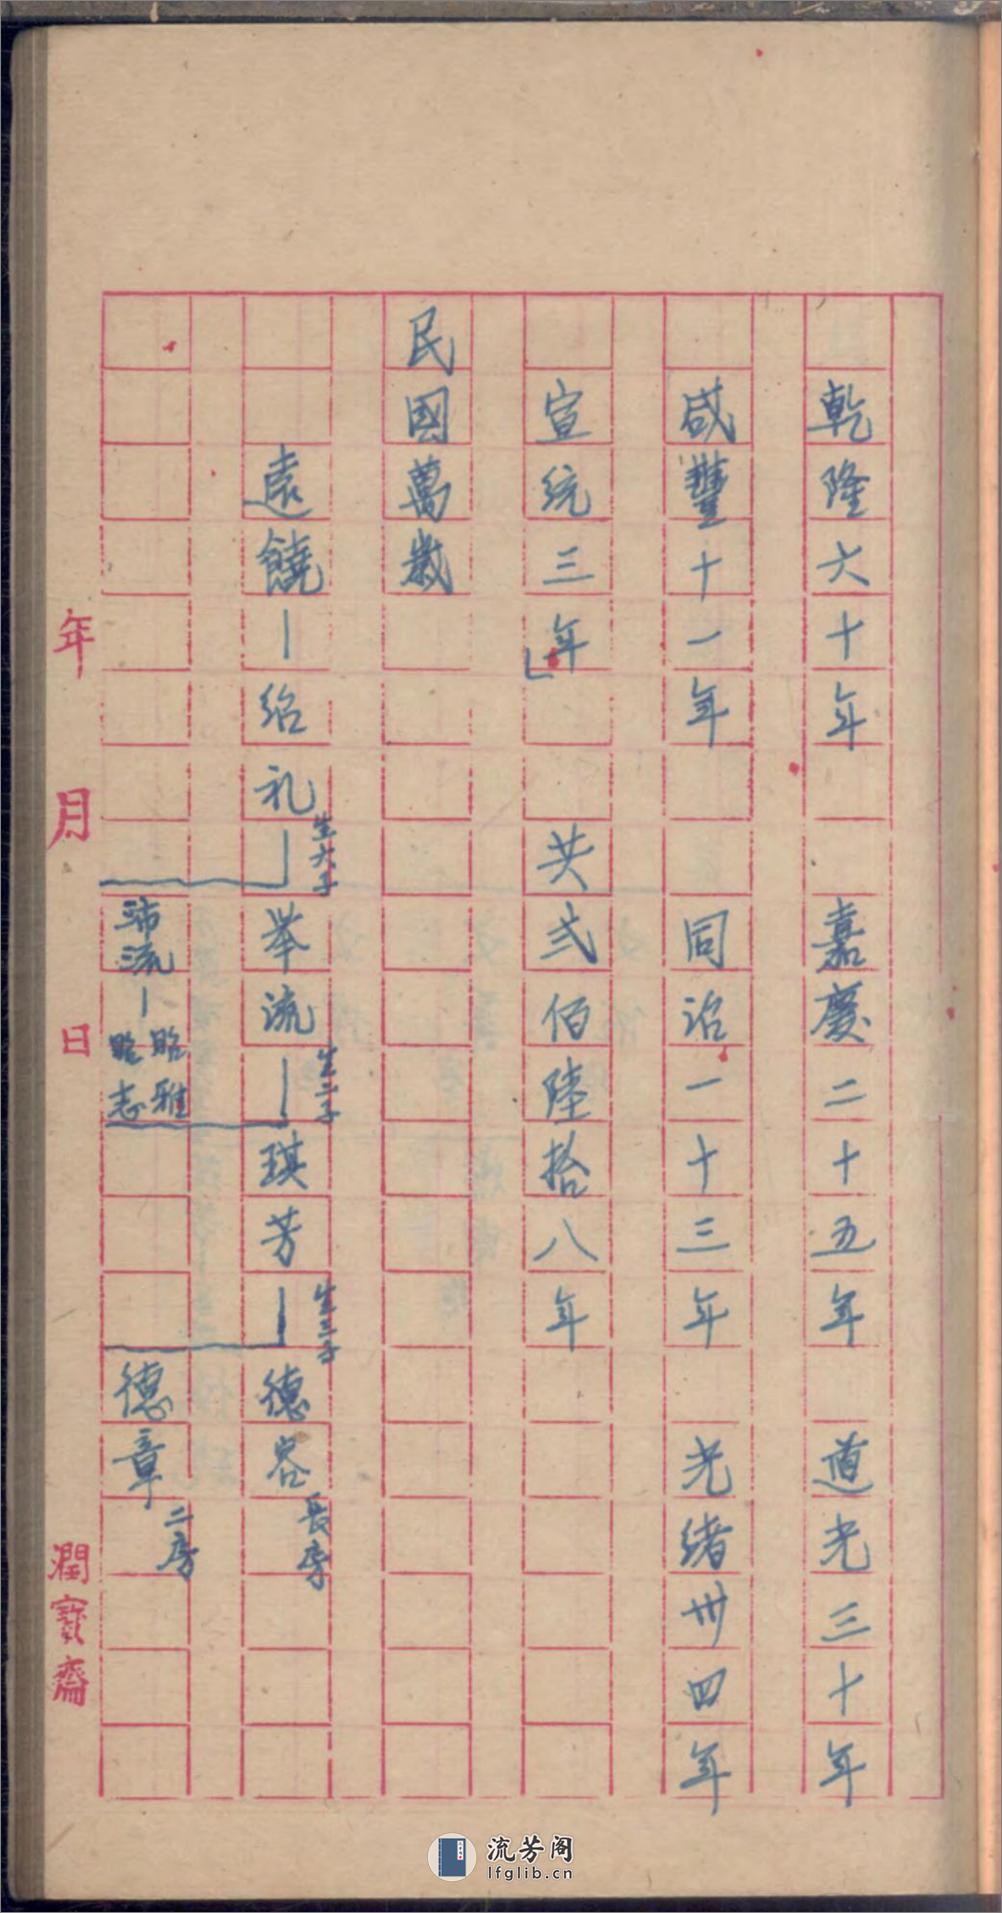 乾隆六十年　嘉慶二十五年　道光三十年
咸豐十一年　同治一十三年　光緒卅四年
宣统三年　共弎佰陸拾八年
民國萬歲
遠饒—绍礼—举流—琪芳—德容
生六子
生二子
生三子
長房
沛流—昭雅
昭志
德章
二房
年　月　日　潤寶齋
流芳阁
lfglib.cn